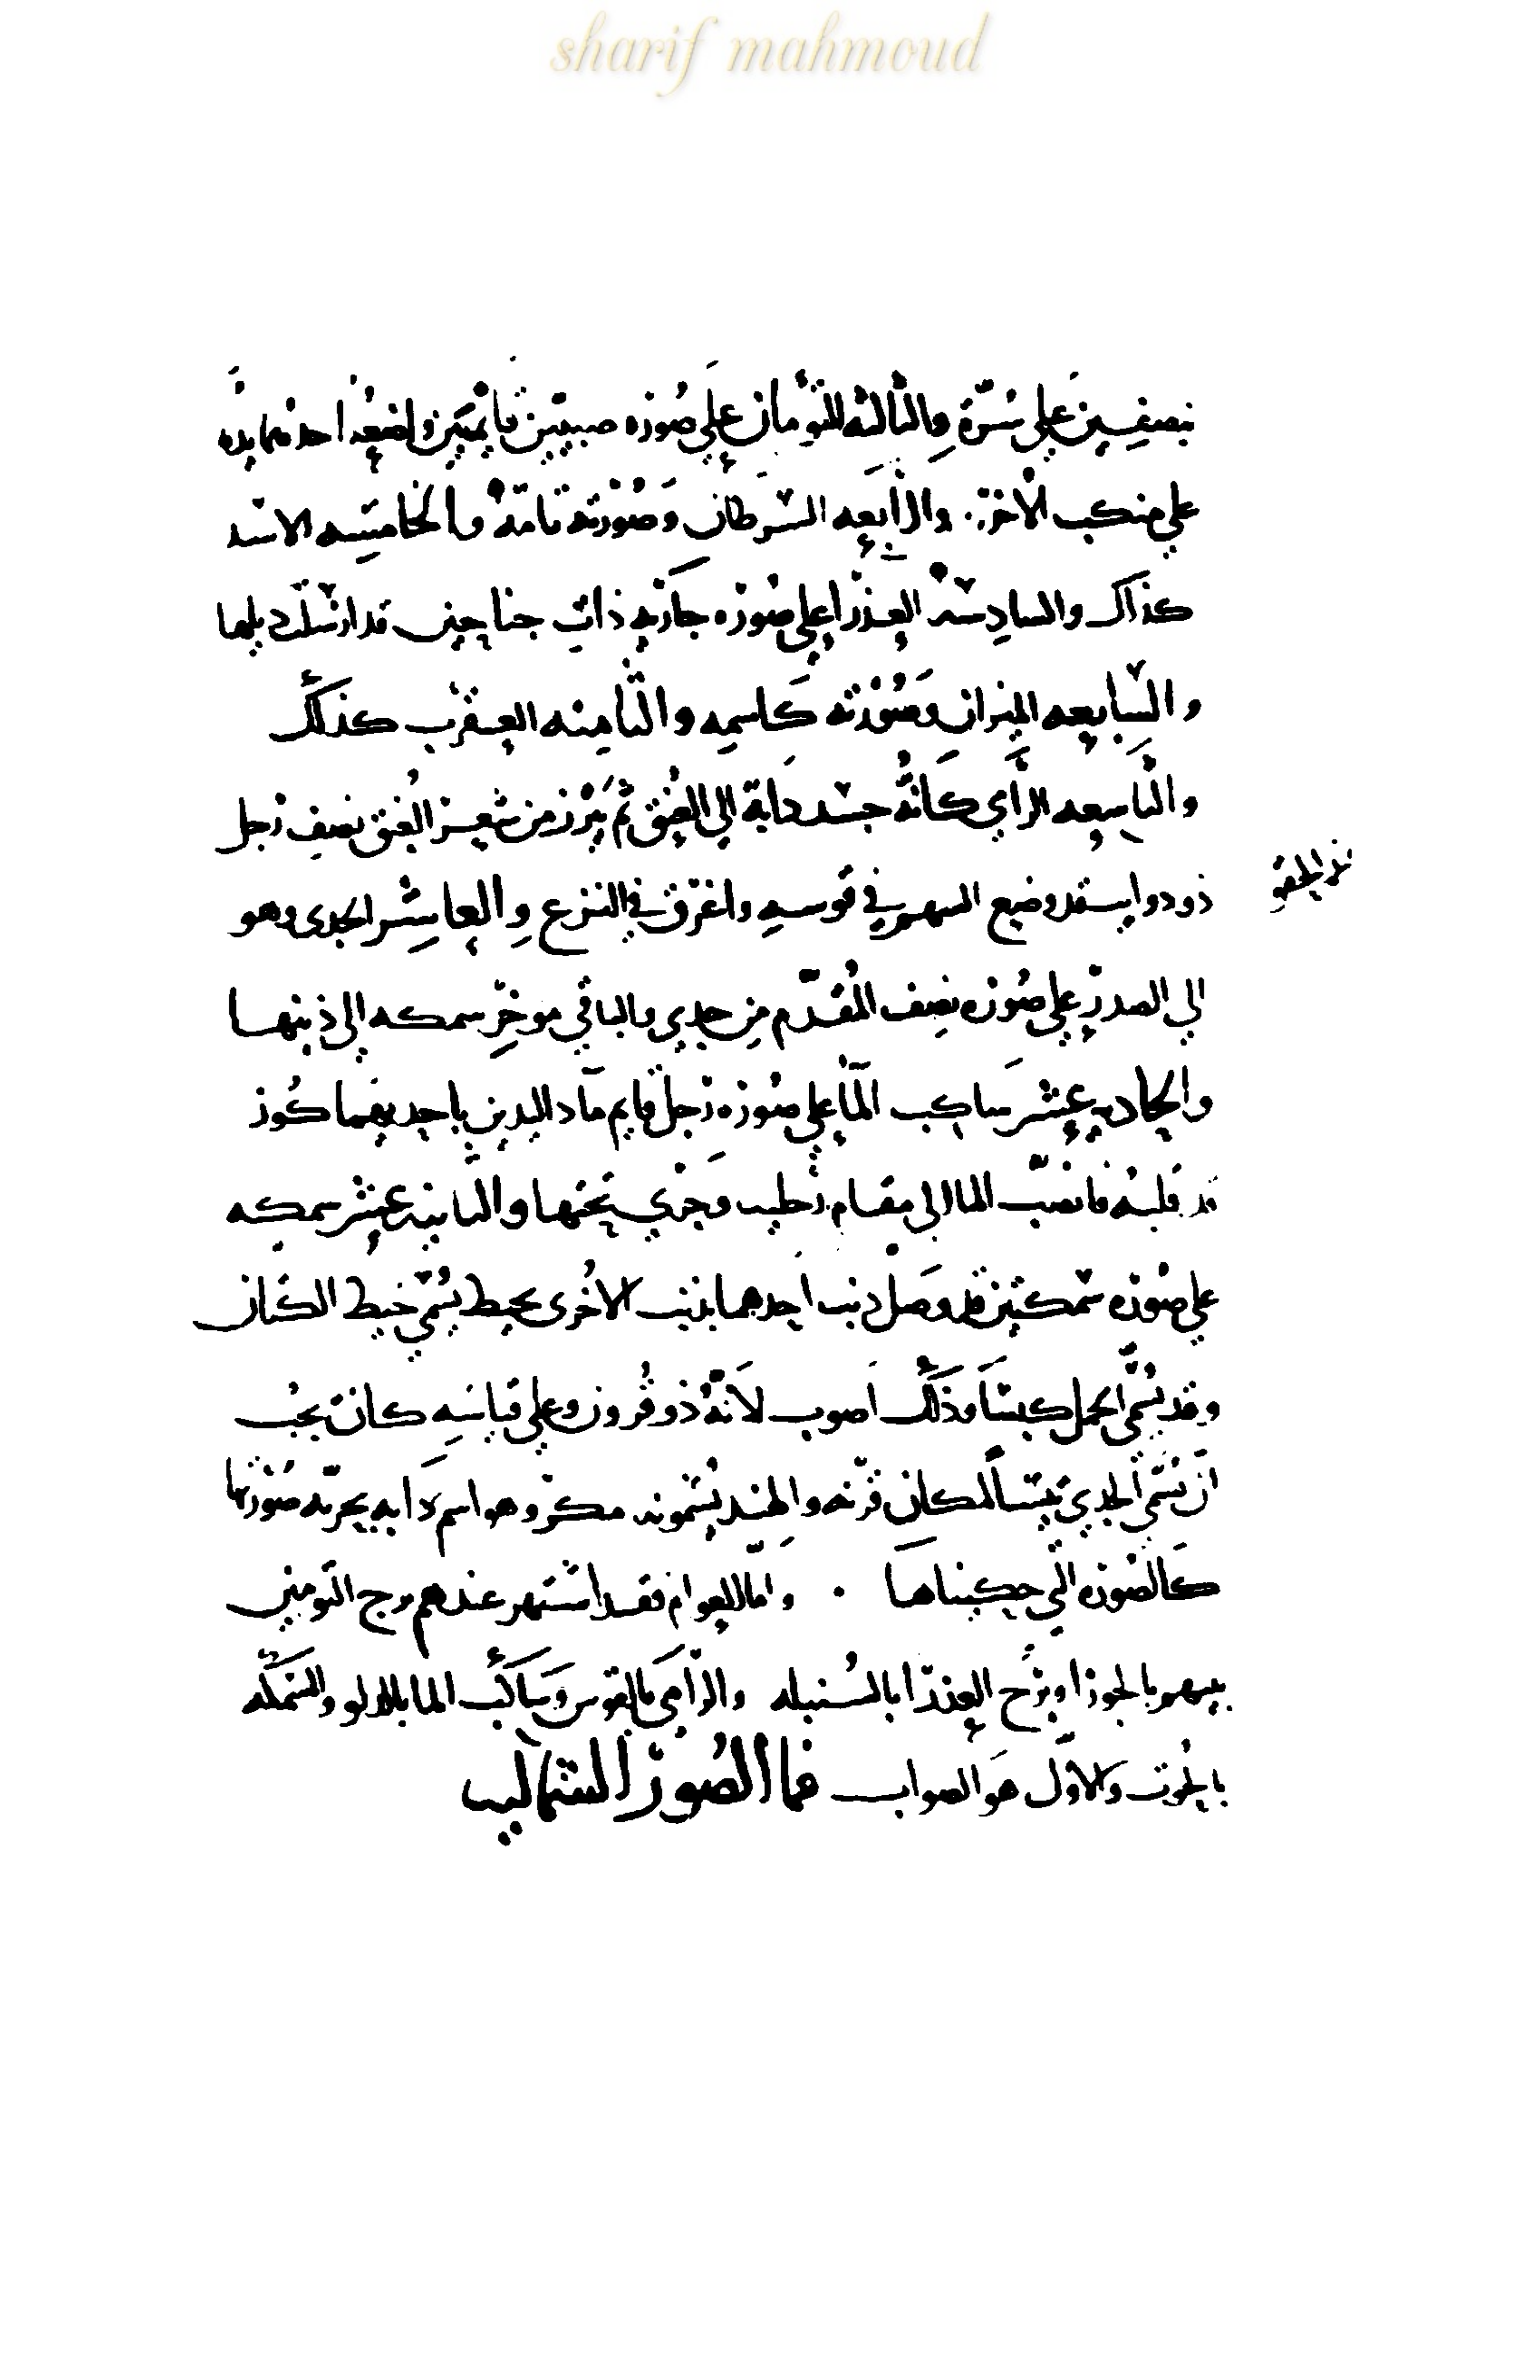 sharif mahmoud
بنصفين علي سُرّة والثالثه التوءمان علي صُورَه صبيين قايمين واضعُ احدهما يده
علي منكب الاخر والرابعه السرطان وَصُورَته تامّة والخامسه الاسد
كذاك والسادِسه العذرا علي صُورَه جاريه ذات جناحين قد ارسلت ذيلها
والسابعه الميزان وَصُورَته كاسمِه والثامنه العقرب كذلك
والتاسعه الرامي كانّهُ جسد دابة الي العُنق ثُم يَبْرُز من شعر العُنق نصف رَجل
ذو دوايب قد وضع السهم في قوسه واغرق في النزع وِالعاشر الجدي وهو
الي الصدر علي صُورَه نصف المُقدّم مِن جدي والباقي موخّرِ سمكه الي ذنبها
والحاديه عشر ساكب المآ علي صُورَه رَجل قايم مآد اليدين باحديهما كُوز
قد قلبهُ فانصبّ الما الي مقام رجليه وجري تحتها والثانيه عشر سمكه
علي صُورَه سمكتين قد وصل ذنب احدهما بذنب الاُخري بخيط يُسمّي خيط الكتان
وقد يُسمَّي الحمل كبشاً وذلك اصوب لانّهُ ذو قُرون وعلي قياسِه كان يجبُ
ان يُسمّي الجدي تيساً لمكان قرنه والهند يُسمّونه مكر وهو اسم دابه بحريّه صُورَتها
كالصُورَه التي حكيناها . وامّا العوام فقد اشتهر عندهم برج التومين
بينهم بالجوزا وبُرج العذرا بالسُنبله والرّامي بالقوس وَساكب الما بالدلو والسّمكه
بالحُوت والاوّل هو الصواب فما الصُوَر الشماليه